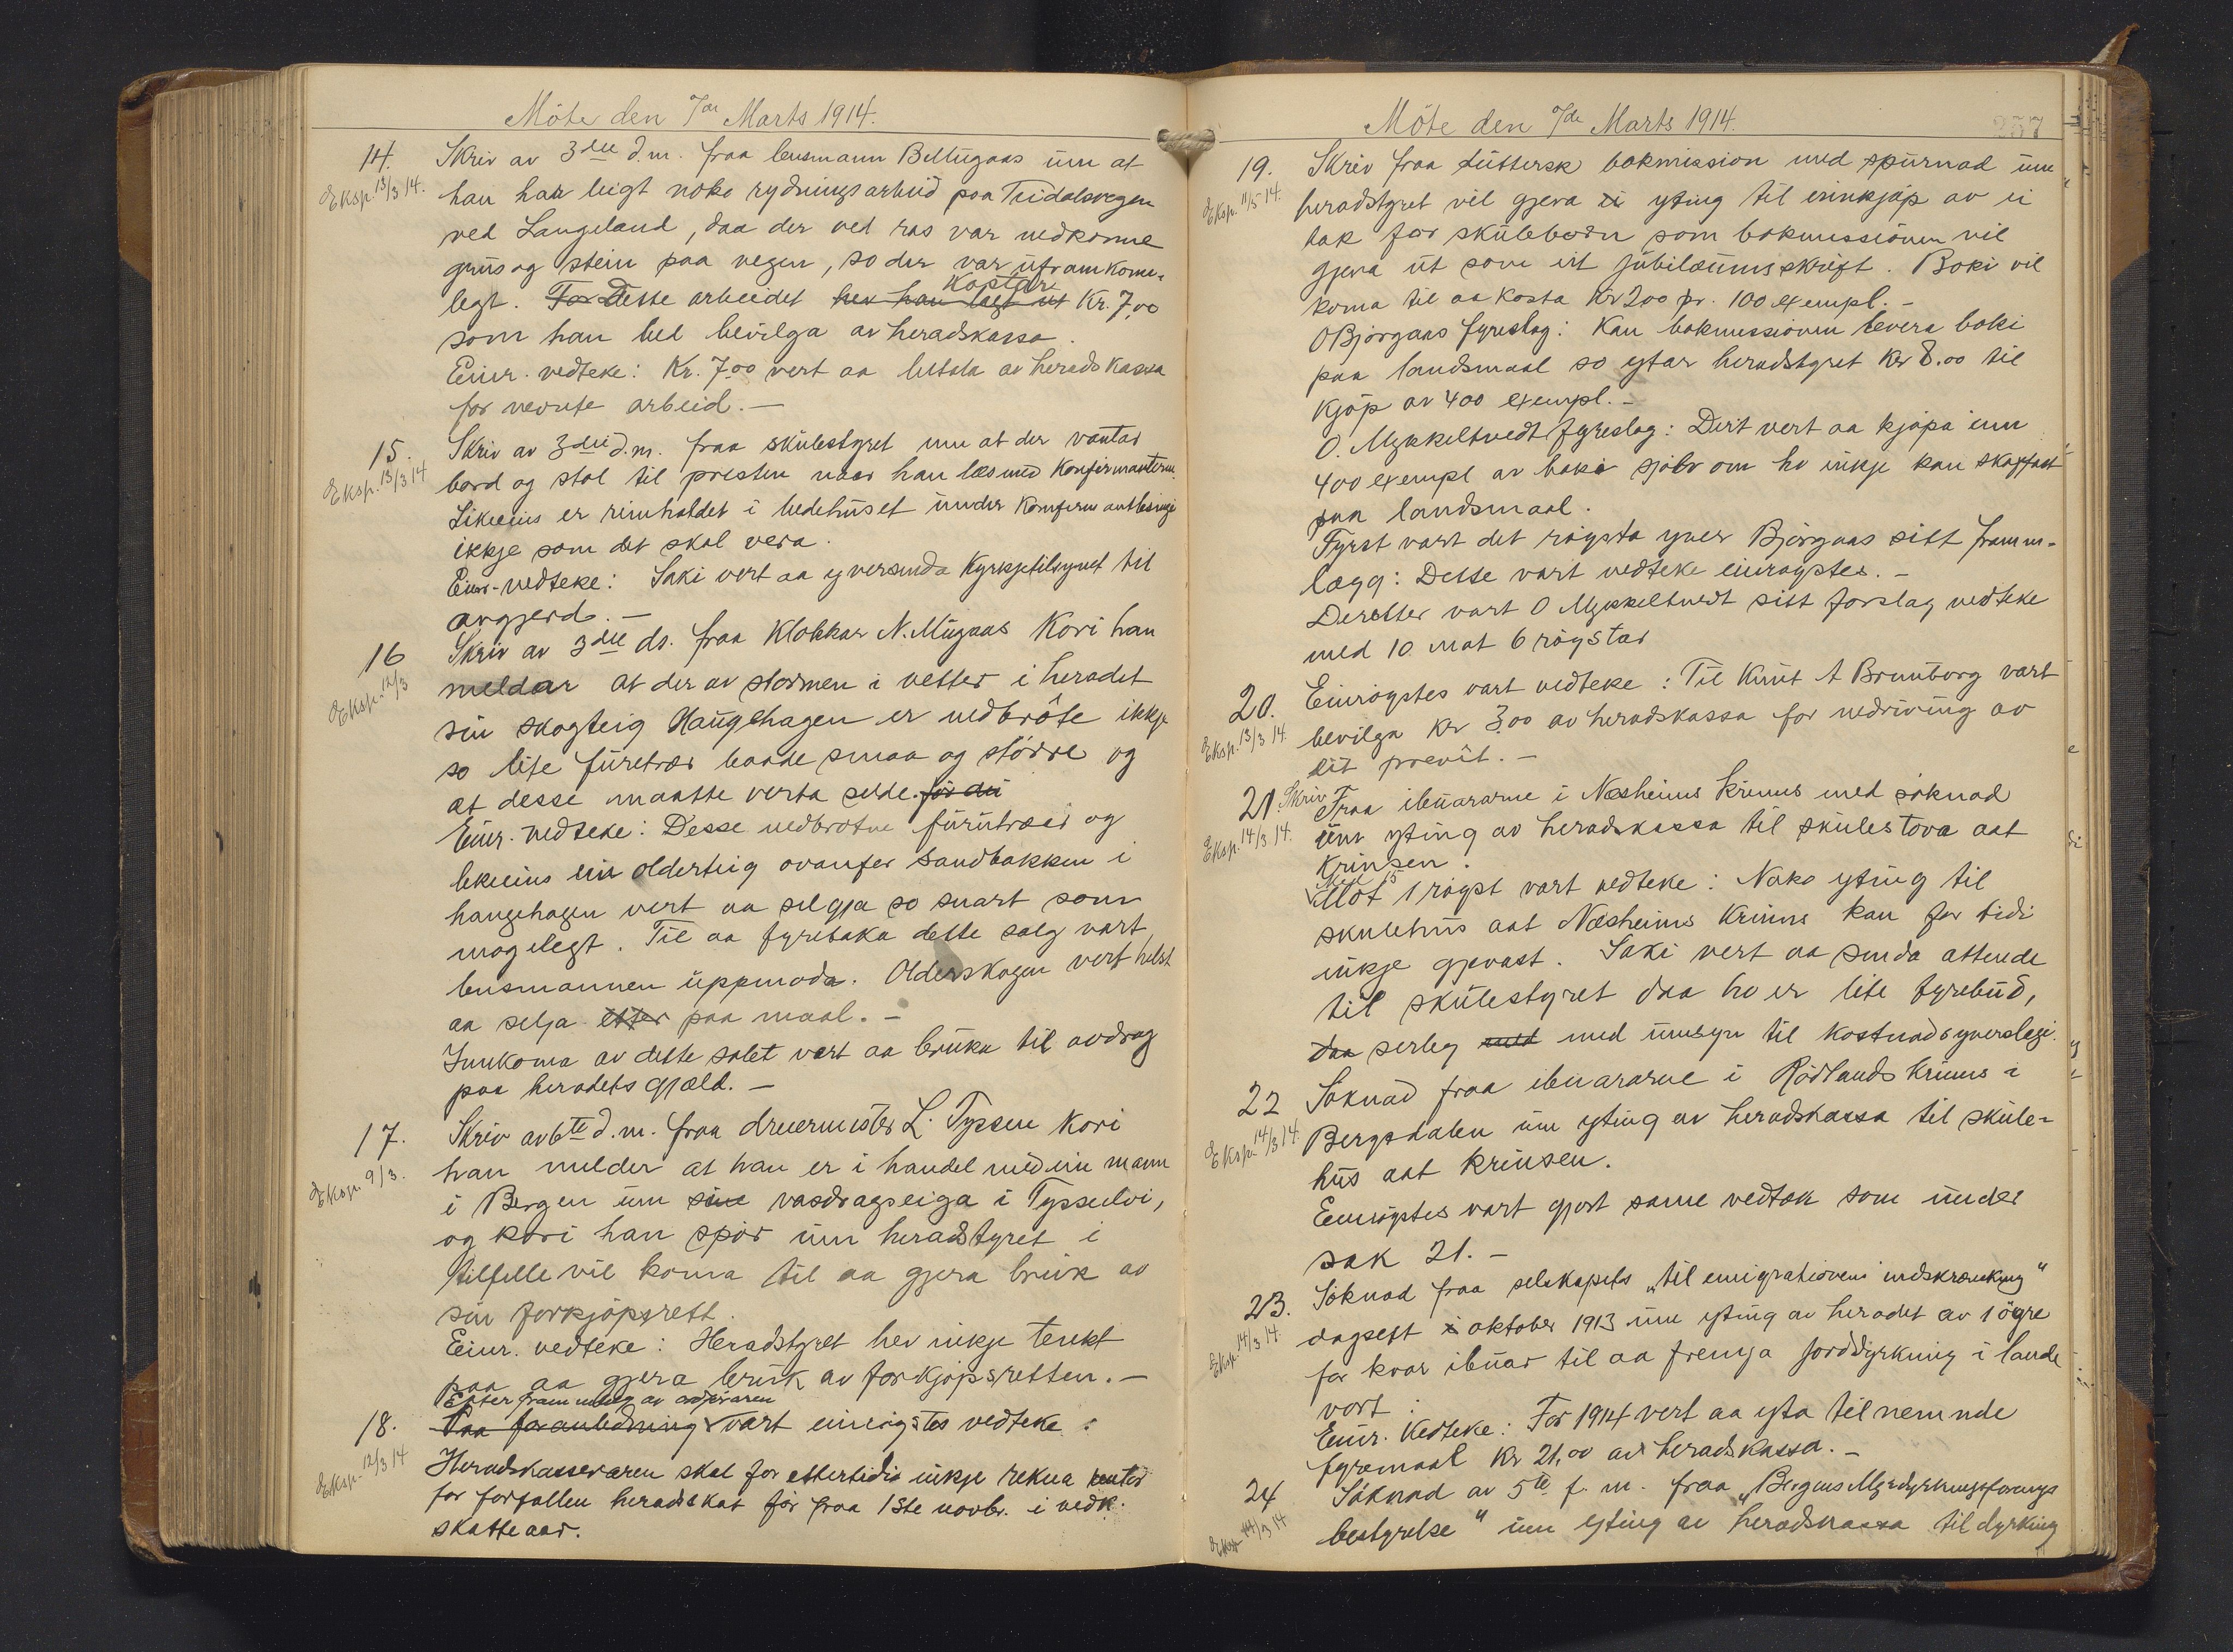 Möte den 7de Marts 1914.
14. Skriv av 3die d.m. fraa lensmann Beltugaas um at
Eksp. 13/3 14. han har leigt noko rydningsarbeid paa Teidalsvegen
ved Langeland, daa der ved ras var nedkome
grus og stein paa vegen, so der var uframkome-
legt. For dette arbeidet hev han lagt ut Kostar Kr. 7,00
som han bed bevilga av heradskassa.
Einr. vedteke: Kr. 7.00 vert aa betala av heradskassa
for nevnte arbeid. —
15. Skriv av 3die d.m. fraa skulestyret um at der vantar
Eksp. 13/3 14 bord og stol til presten naar han les med konfirmantern.
Likeeins er reinhaldet i bedehuset under konfirmantlesingi
ikkje som det skal vera.
Einr. vedteke: Saki vert aa yversenda Kyrkjetilsynet til
avgjerd. —
16 Skriv av 3die ds. fraa Klokkar N. Mugaas kori han
Eksp. 12/3 meldar at der av stormen i vetter i heradet
sin skogteig Haugehagen er nedbröte ikkje
so lite furetrær baade smaa og större og
at desse maatte verta selde. för dei
Einr. vedteke: Desse nedbrotne furutræer og
likeeins ein olderteig ovanfor Sandbakken i
haugehagen vert aa selgja so snart som
mogelegt. Til aa fyretaka dette salg vart
lensmannen uppmoda. Olderskogen vert helst
aa selja etter paa maal. —
Innkoma av dette salet vert aa bruka til avdrag
paa heradets gjæld. —
17. Skriv av 6te d.m. fraa dreiermester L. Tyssen kori
Eksp. 9/3. han melder at han er i handel med ein mann
i Bergen um sine vasdragseiga i Tysselvi,
og kori han spör um heradstyret i
tilfelle vil koma til aa gjera bruk av
sin forkjöpsrett.
Einr. vedteke: Heradstyret hev inkje tenkt
paa aa gjera bruk av forkjöpsretten. —
Etter frammlegg av ordföraren
18. Paa foranledning vart einrögstes vedteke:
Eksp. 12/3 14 Heradskasseraren skal for ettertidi inkje rekna renter
for forfallen heradskat för fraa 1ste novbr. i vedk.
skatteaar.
Möte den 7de Marts 1914. 257
19. Skriv fraa Luthersk bokmission med spurnad um
Eksp. 11/5 14. heradstyret vil gjeva ei yting til innkjöp av ei
bok for skuleborn som bokmissionen vil
gjeva ut som eit jubilæumsskrift. Boki vil
koma til aa kosta Kr 200 pr. 100 exempl. —
O Bjørgaas fyreslag: Kan bokmissionen levera boki
paa landsmaal so ytar heradstyret Kr 8.00 til
kjöp av 400 exempl. —
O. Mykkeltvedt fyreslag: Dert vert aa kjöpa inn
400 exempl av boki sjölv om ho inkje kan skaffast
paa landsmaal.
Fyrst vart det rögsta yver Björgaas sitt framm-
lægg: Dette vart vedteke einrögstes. —
Deretter vart O Mykkeltvedt sitt forslag vedteke
med 10 mot 6 rögster
20. Einrögstes vart vedteke: Til Knut A Brunborg vart
Eksp. 13/3 14. bevilga Kr 3.00 av heradskassa for nedriving av
eitprevit. —
21. Skriv Fraa ibuararne i Næsheims Krins med söknad
Eksp. 14/3 14. um yting av heradskassa til skulestova aat
Krinsen.
Med 15
Mot 1 rögst vart vedteke: Noko yting til
skulehus aat Næsheims Krins kan for tidi
inkje gjevast. Saki vert aa senda attende
til skulestyret daa ho er lite fyrebud,
daa serleg med med umsyn til kostnadsyverslagi.
22 Söknad fraa ibuararne i Rödlands Krins i
Eksp. 14/3 14. Bergsdalen um yting av heradskassa til skule-
hus aat krinsen.
Einrögstes vart gjort same vedtak som under
sak 21. —
23. Söknad fraa selskapets „til emigrationens indskrænkning“
Eksp. 14/3 14. dagsett i oktober 1913 um yting av heradet av 1 öyre
for kvar ibuar til aa fremja jorddyrkning i lande
vort.
Einr. Vedteke: For 1914 vert aa yta til nemnde
fyremaal Kr 21,00 av heradskassa. —
24 Söknad av 5te f. m. fraa „Bergens Myrdyrkningsforenings
Eksp. 14/3 14 bestyrelse“ um yting av heradskassa til dyrking